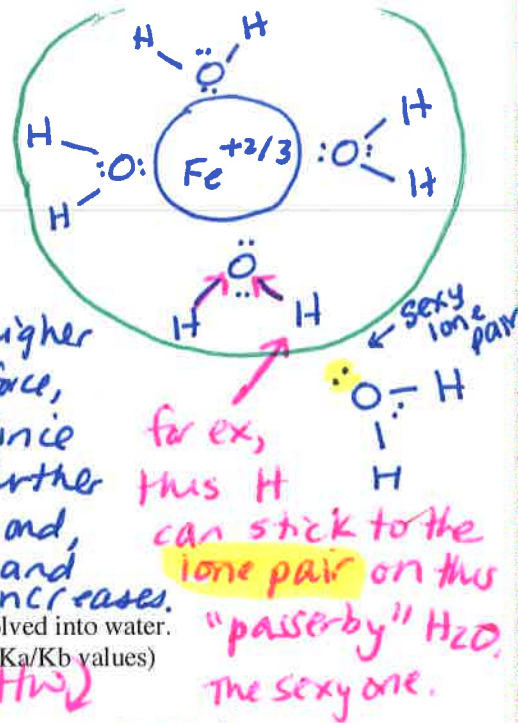 H H
:Ö:
H :O: Fe +2/3 :O: H
H H
:Ö:
H H
sexy
lone
pair
igher
orce,
ince
urther
ond,
and
ncreases.
:O – H
H
for ex,
this H
can stick to the
lone pair on this
"passerby" H2O.
The sexy one.
olved into water.
Ka/Kb values)
HW)